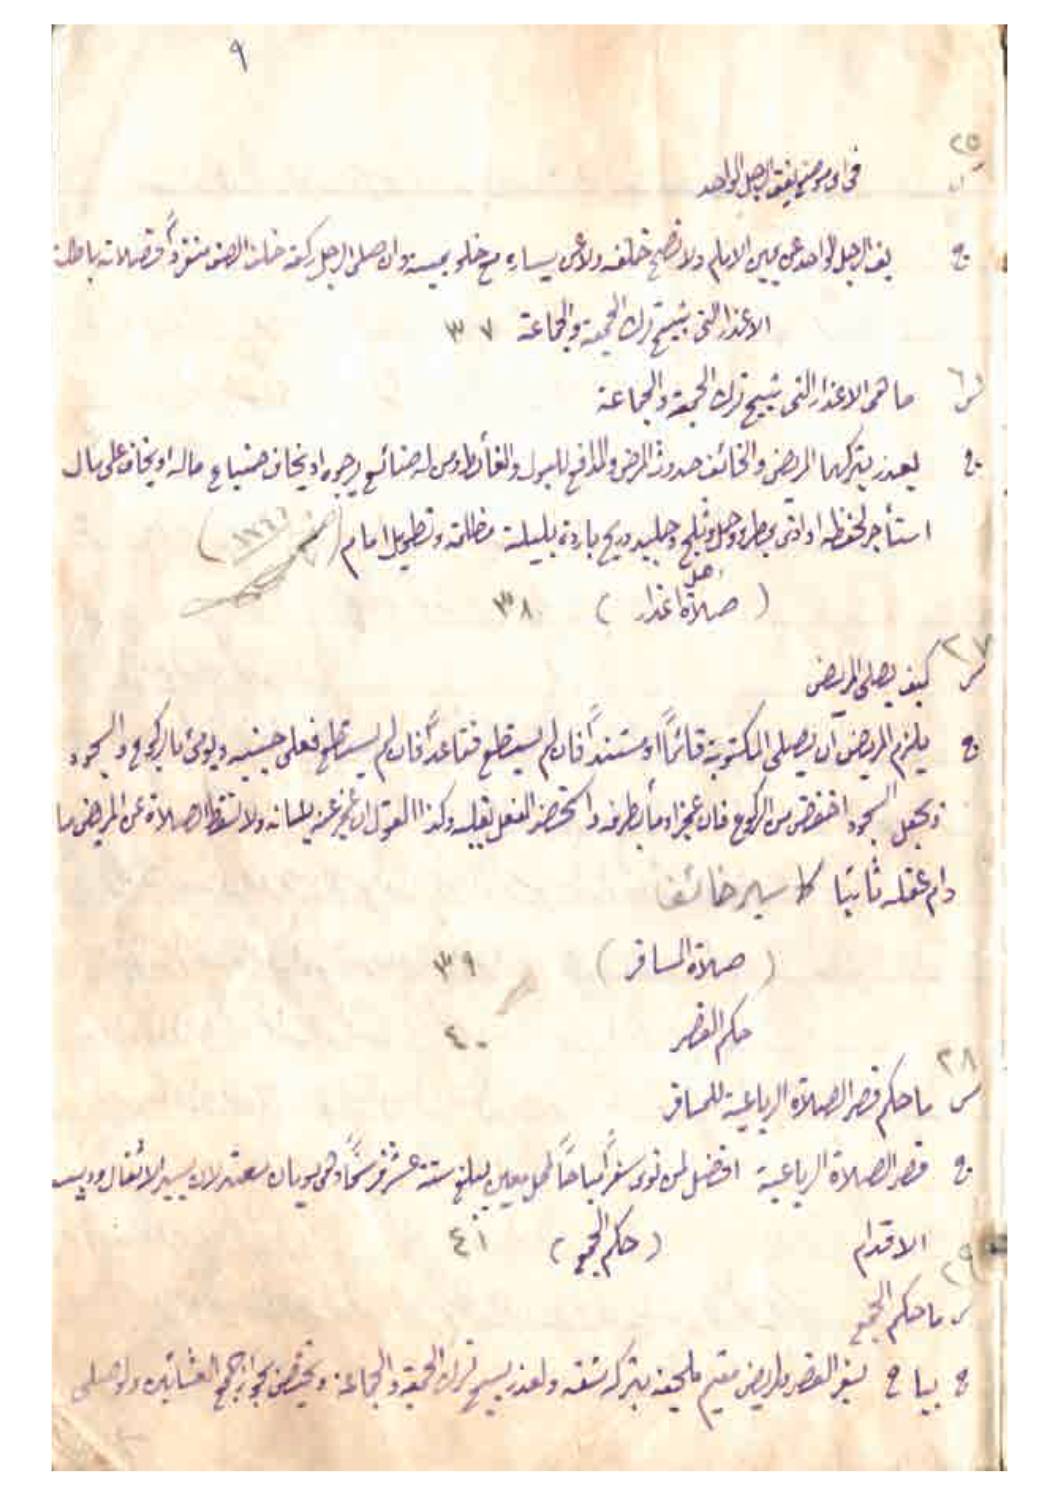 ٩
٢٥
س في اي موضع يقف الرجل الواحد
ج يقف الرجل الواحد عن يمين الامام ولا تصح خلفه ولا عن يساره مع خلو يمينه وان صلى الرجل ركعة خلف الصف منفرداً فصلاته باطلة
الاعذار التي تبيح ترك الجمعة والجماعة ٣٧
س ٦ ما هي الاعذار التي تبيح ترك الجمعة والجماعة
ج يعذر بتركهما المريض والخائف حدوث المرض والمدافع للبول والغائط ومن له ضائع يرجوه او يخاف ضياع ماله او يخاف على مال
استأجر لحفظه او اذى بمطر ووحل وثلج وجليد وريح باردة بليلة مظلمة وتطويل امام
اهل
( صلاة اعذار ) ٣٨
٢٧
س كيف يصلي المريض
ج يلزم المريض أن يصلي المكتوبة قائماً او مستنداً فان لم يستطع فقاعداً فان لم يستطع فعلى جنبه ويومئ بالركوع والسجود
ويجعل السجود اخفض من الركوع فان عجز اومأ بطرفه واستحضر الفعل بقلبه وكذا القول ان عجز عنه بلسانه ولا تسقط الصلاة عن المريض ما
دام عقله ثابتا كاسير خائف
( صلاة المسافر ) ٣٩
حكم القصر ٤٠
٢٨
س ما حكم قصر الصلاة الرباعية للمسافر
ج قصر الصلاة الرباعية افضل لمن نوى سفراً مباحاً لمحل معين يبلغ ستة عشر فرسخاً وهي يومان معتدلان بسير الاثقال ودبيب
الاقدام ( حكم الجمع ) ٤١
٢٩
س ما حكم الجمع
ج يباح بسفر القصر ولمريض مقيم يلحقه بتركه مشقة ولعذر يبيح ترك الجمعة والجماعة ويختص بجواز جمع العشائين ولو صلى